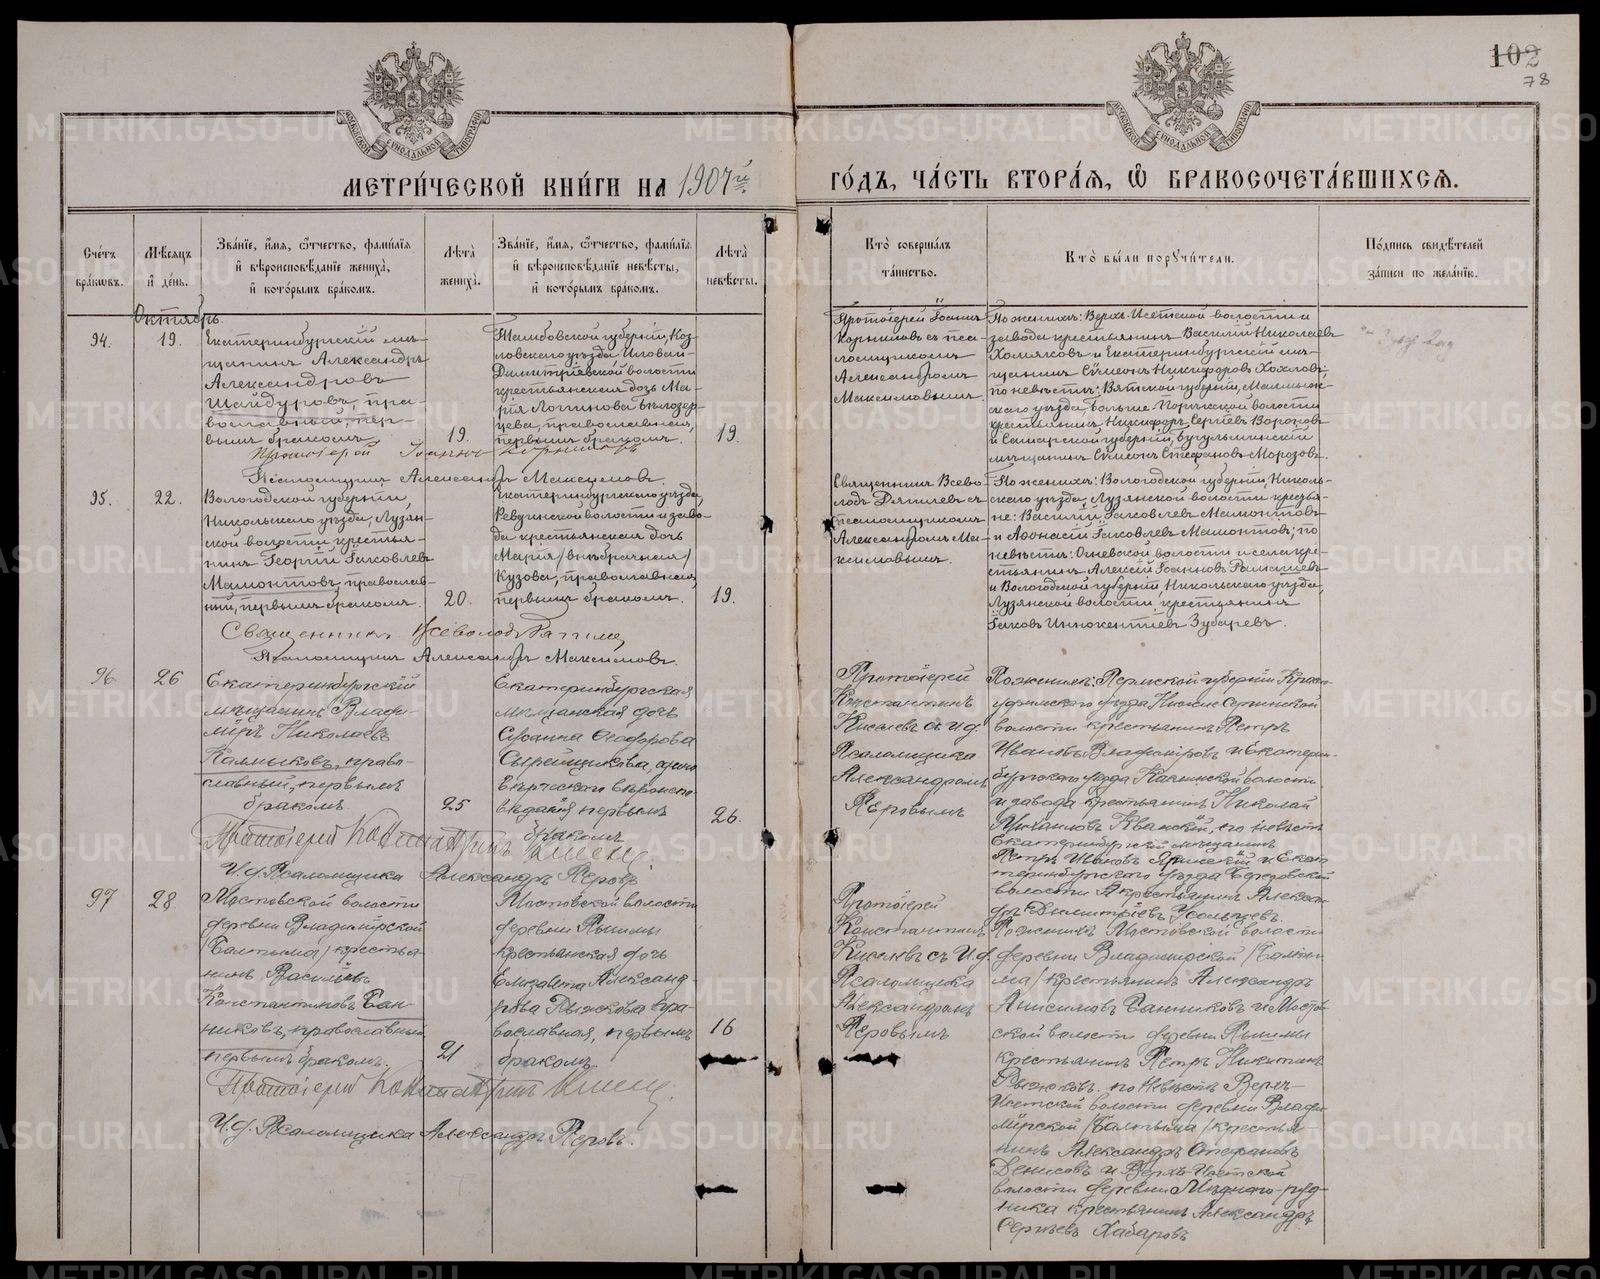 102
78
МЕТРИ́ЧЕСКОЙ КНИ́ГИ НА 1907й
ГО́ДЪ, ЧА́СТЬ ВТОРА́Я, Ѽ БРАКОСОЧЕТА́ВШИХСЯ.
Сче́тъ бра́ковъ.
Мѣ́сяцъ и҆ де́нь.
Зва́нїе, и҆́мя, ѻ҆́тчество, фами́лїя
и҆ вѣроисповѣ́данїе жениха̀,
и҆ кото́рымъ бра́комъ.
Лѣта̀ жениха̀.
Зва́нїе, и҆́мя, ѻ҆́тчество, фами́лїя
и҆ вѣроисповѣ́данїе невѣ́сты,
и҆ кото́рымъ бра́комъ.
Лѣта̀ невѣ́сты.
Кто̀ соверша́лъ та́инство.
Кто̀ бы́ли порꙋчи́тели.
По́дпись свидѣ́телей за́писи по жела́нїю.
Октябрь.
94.
19.
Екатеринбургскій мѣ-
щанинъ Александръ
Александровъ
Шайдуровъ, пра-
вославный, пер-
вымъ бракомъ
19.
Тамбовской губерніи, Коз-
ловскаго уѣзда, Иловай-
Димитріевской волости
крестьянская дочь Ма-
рія Логинова Бѣлозер-
цева, православная,
первымъ бракомъ.
19.
Протоіерей Іоаннъ
Корниловъ съ пса-
ломщикомъ
Александромъ
Максимовымъ.
По женихѣ: Верхъ-Исетской волости и
завода крестьянинъ Василій Николаевъ
Хомяковъ и Екатеринбургскій мѣ-
щанинъ Сѵмеонъ Никифоровъ Хохловъ;
по невѣстѣ: Вятской губерніи, Малмыж-
скаго уѣзда, Больше Порекской волости
крестьянинъ Никифоръ Сергіевъ Вороновъ
и Самарской губерніи, Бугульминскій
мѣщанинъ Сѵмеонъ Стефановъ Морозовъ.
Протоіерей Іоаннъ Корниловъ
Псаломщикъ Александръ Максимовъ.
95.
22.
Вологодской губерніи,
Никольскаго уѣзда, Лузян-
ской волости крестья-
нинъ Георгій Іаковлевъ
Мамонтовъ, православ-
ный, первымъ бракомъ.
20.
Екатеринбургскаго уѣзда,
Ревдинской волости и заво-
да крестьянская дочь
Марія /внѣбрачная/
Кузова, православная,
первымъ бракомъ.
19.
Священникъ Всево-
лодъ съ
псаломщикомъ
Александромъ Ма-
ксимовымъ.
По женихѣ: Вологодской губерніи, Николь-
скаго уѣзда, Лузянской волости крестья-
не: Василій Іаковлевъ Мамонтовъ
и Аѳонасій Іаковлевъ Мамонтовъ; по
невѣстѣ: Огневской волости и села кре-
стьянинъ Алексій Іоанновъ
и Вологодской губерніи, Никольскаго уѣзда,
Лузянской волости, крестьянинъ
Іаковъ Иннокентіевъ Зубаревъ.
Священникъ Всеволодъ
Псаломщикъ Александръ Максимовъ.
96
26
Екатеринбургскій
мѣщанинъ Влади-
міръ Николаевъ
Калмыковъ, право-
славный, первымъ
бракомъ
25
Екатеринбургская
мѣщанская дочь
Ѳеодорова
Сырейщикова, едино-
вѣрческаго вѣроиспо-
вѣданія первымъ
бракомъ
26.
Протоіерей
Константинъ
Киселевъ съ И.д.
Псаломщика
Александромъ
Перовымъ
По женихѣ: Пермской губерніи Красно-
уфимскаго уѣзда Нижне Сергинской
волости крестьянинъ Петръ
Ивановъ Владиміровъ и Екатерин-
бургскаго уѣзда Каслинской волости
и завода крестьянинъ Николай
Михаиловъ по невѣстѣ
Екатеринбургскій мѣщанинъ
Петръ Ивановъ и Екат-
теринбургскаго уѣзда Березовской
волости крестьянинъ Алексан-
дръ Дмитріевъ Усольцевъ.
Протоіерей Константинъ Киселевъ
И.д. Псаломщика Александръ Перовъ
97
28
Мостовской волости
деревни Владимірской
/Балтыма/ крестья-
нинъ Василій
Константиновъ Бан-
никовъ, православный
первымъ бракомъ.
21
Мостовской волости
деревни Пышмы
крестьянская дочь
Елизавета Александ-
рова Рыжкова пра-
вославная, первымъ
бракомъ
16
Протоіерей
Константинъ
Киселевъ съ И.д.
Псаломщика
Александромъ
Перовымъ
По женихѣ Мостовской волости
деревни Владимірской /Балты-
ма/ крестьянинъ Александръ
Анисимовъ Банниковъ и Мостов-
ской волости деревни Пышмы
крестьянинъ Петръ Никитинъ
Рыжковъ. по невѣстѣ Верх-
Исетской волости деревни Влади-
мірской /Балтыма/ крестья-
нинъ Александръ Стефановъ
Денисовъ и Верхъ-Исетской
волости деревни Мѣднаго-руд-
ника крестьянинъ Александръ
Сергѣевъ Хабаровъ
Протоіерей Константинъ Киселевъ
И.д. Псаломщика Александръ Перовъ.
METRIKI.GASO-URAL.RU